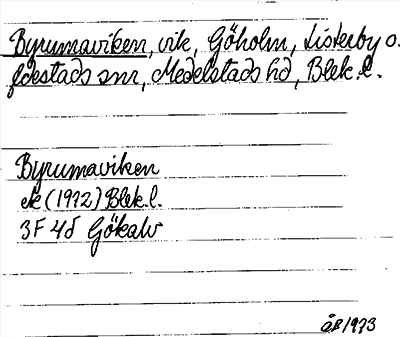 Byrumaviken, vik, Göholm, Listerby o.
fdestads snr, Medelstads hd, Blek. l.
Byrumaviken
ek (1912) Blek. l.
3F 4d Gökalv
ÅP 1973